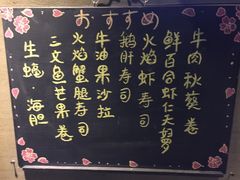 おすすめ
牛肉秋葵卷
鲜百合虾仁天妇罗
火焰虾寿司
鹅肝寿司
牛油果沙拉
火焰蟹腿寿司
三文鱼芒果卷
生蚝·海胆